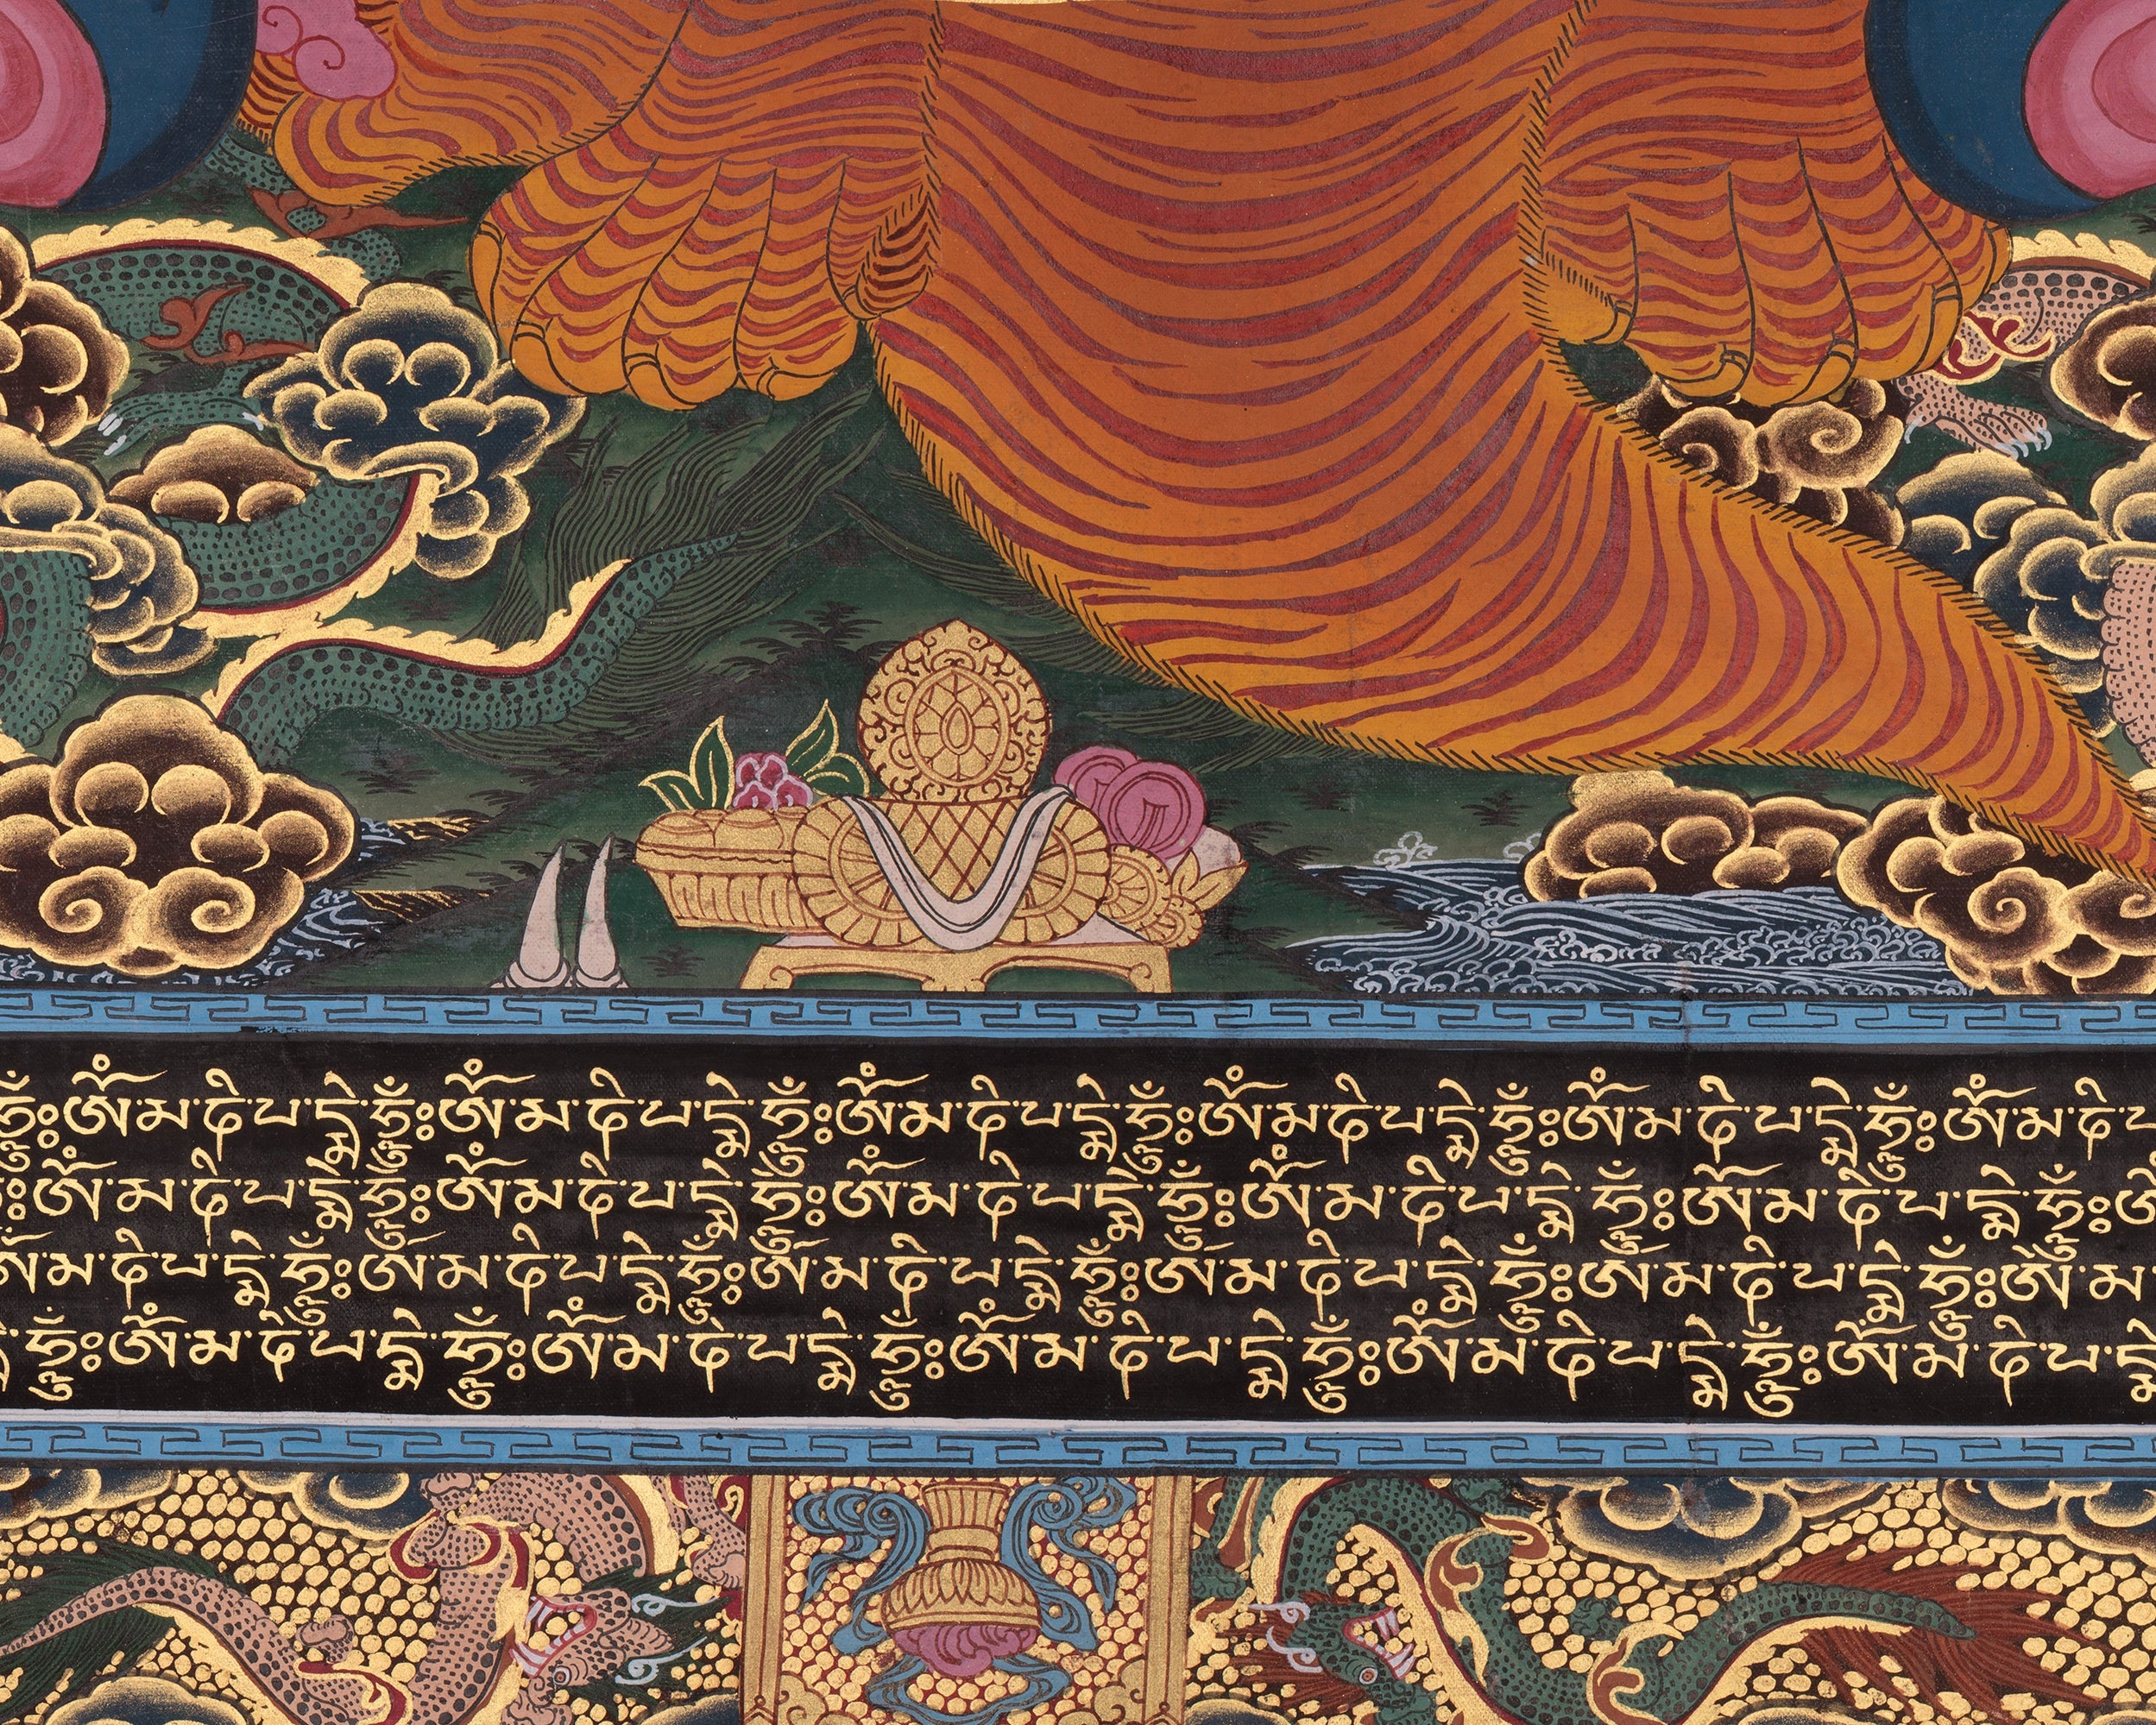 ཧཱུྃ༔ཨོཾ་མ་ཎི་པ་དྨེ་ཧཱུྃ༔ཨོཾ་མ་ཎི་པ་དྨེ་ཧཱུྃ༔ཨོཾ་མ་ཎི་པ་དྨེ་ཧཱུྃ༔ཨོཾ་མ་ཎི་པ་དྨེ་ཧཱུྃ༔ཨོཾ་མ་ཎི་པ་དྨེ་ཧཱུྃ༔ཨོཾ་མ་ཎི་པ
༔ཨོཾ་མ་ཎི་པ་དྨེ་ཧཱུྃ༔ཨོཾ་མ་ཎི་པ་དྨེ་ཧཱུྃ༔ཨོཾ་མ་ཎི་པ་དྨེ་ཧཱུྃ༔ཨོཾ་མ་ཎི་པ་དྨེ་ཧཱུྃ༔ཨོཾ་མ་ཎི་པ་དྨེ་ཧཱུྃ༔
ཨོཾ་མ་ཎི་པ་དྨེ་ཧཱུྃ༔ཨོཾ་མ་ཎི་པ་དྨེ་ཧཱུྃ༔ཨོཾ་མ་ཎི་པ་དྨེ་ཧཱུྃ༔ཨོཾ་མ་ཎི་པ་དྨེ་ཧཱུྃ༔ཨོཾ་མ་ཎི་པ་དྨེ་ཧཱུྃ༔ཨོཾ་མ
ཧཱུྃ༔ཨོཾ་མ་ཎི་པ་དྨེ་ཧཱུྃ༔ཨོཾ་མ་ཎི་པ་དྨེ་ཧཱུྃ༔ཨོཾ་མ་ཎི་པ་དྨེ་ཧཱུྃ༔ཨོཾ་མ་ཎི་པ་དྨེ་ཧཱུྃ༔ཨོཾ་མ་ཎི་པ་དྨེ